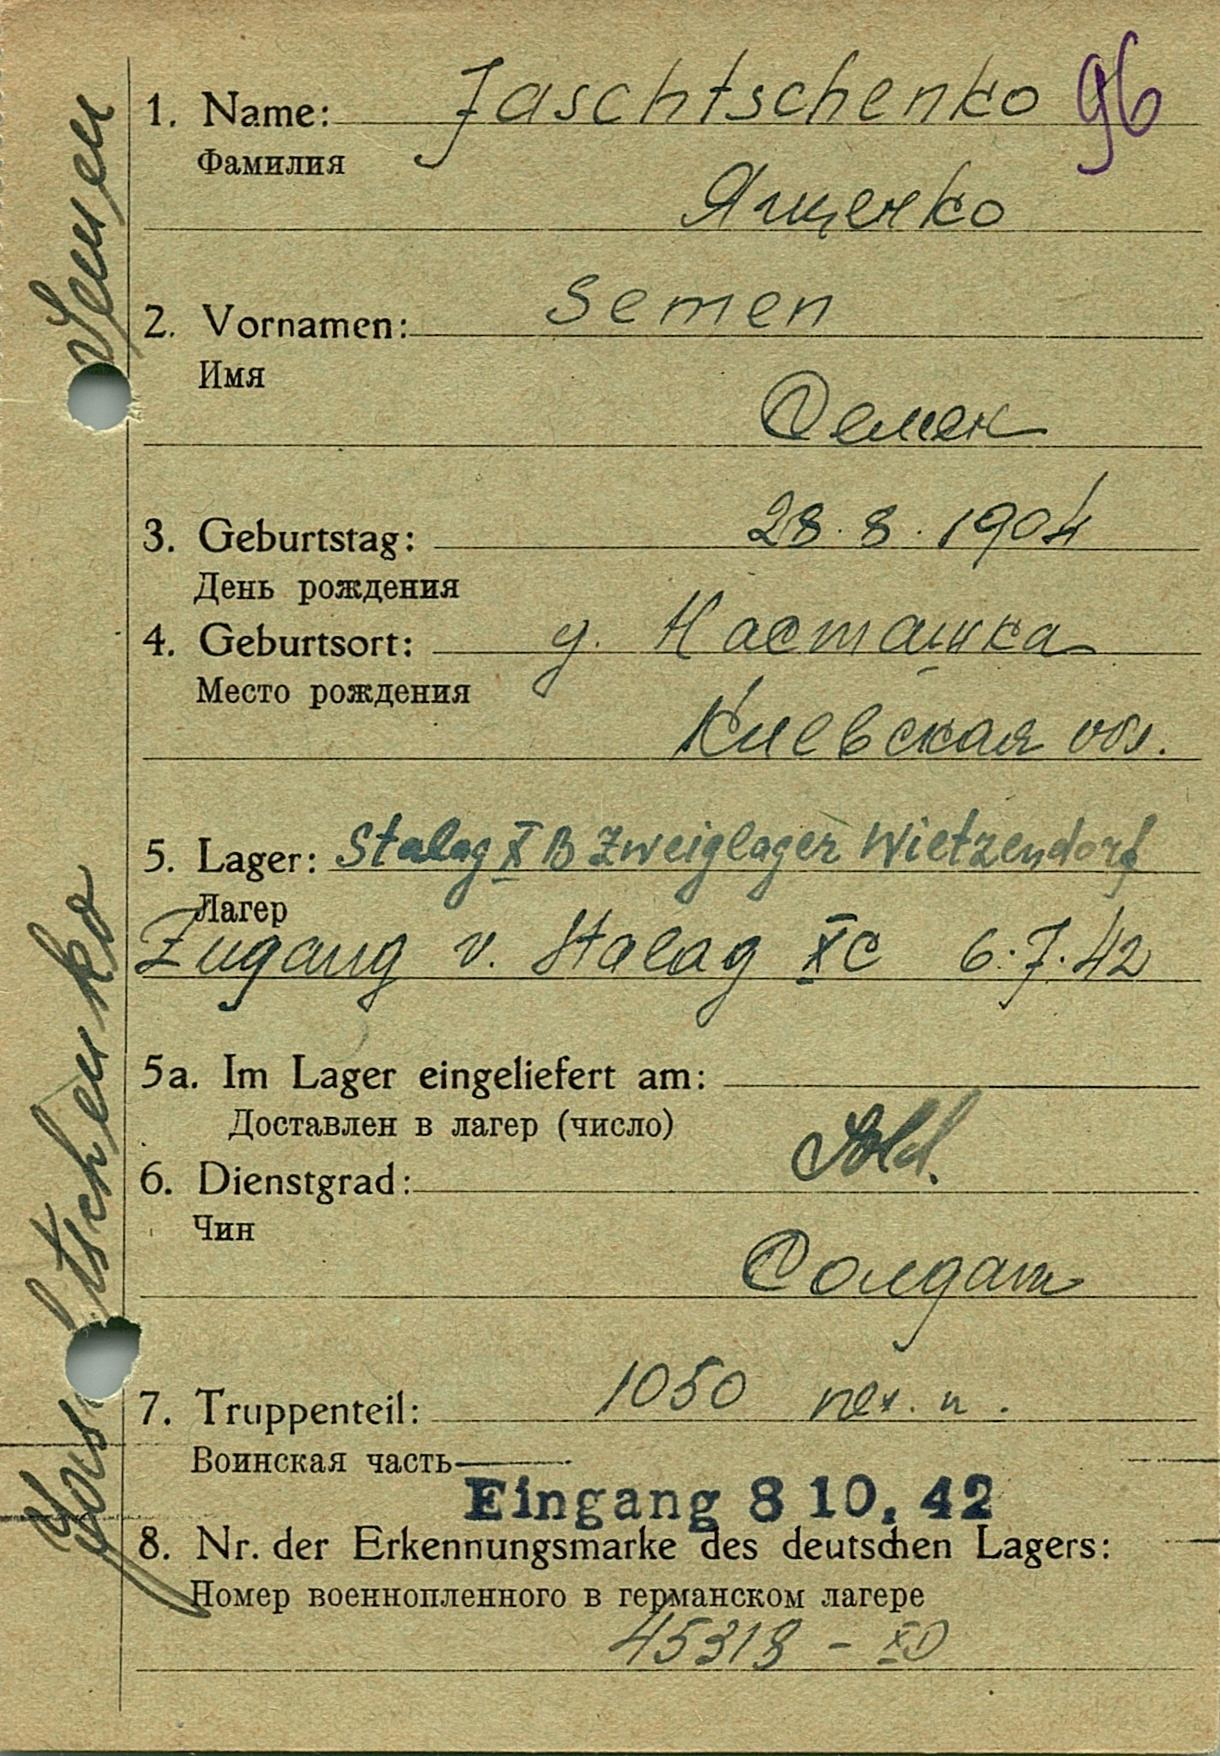 1. Name: Jaschtschenko 96
Фамилия
Ященко
2. Vornamen: Semen
Имя
Семен
3. Geburtstag: 28.8.1904
День рождения
4. Geburtsort: д. Насташка
Место рождения
Киевская обл.
5. Lager: Stalag X B Zweiglager Wietzendorf
Лагер
Zugang v. Stalag XC 6.7.42
5a. Im Lager eingeliefert am:
Доставлен в лагер (число)
Sold.
6. Dienstgrad:
Чин
Солдат
7. Truppenteil: 1050 пех. п.
Воинская часть
Eingang 8 10. 42
8. Nr. der Erkennungsmarke des deutschen Lagers:
Номер военнопленного в германском лагере
45318 - XD
Jaschtschenko Semen